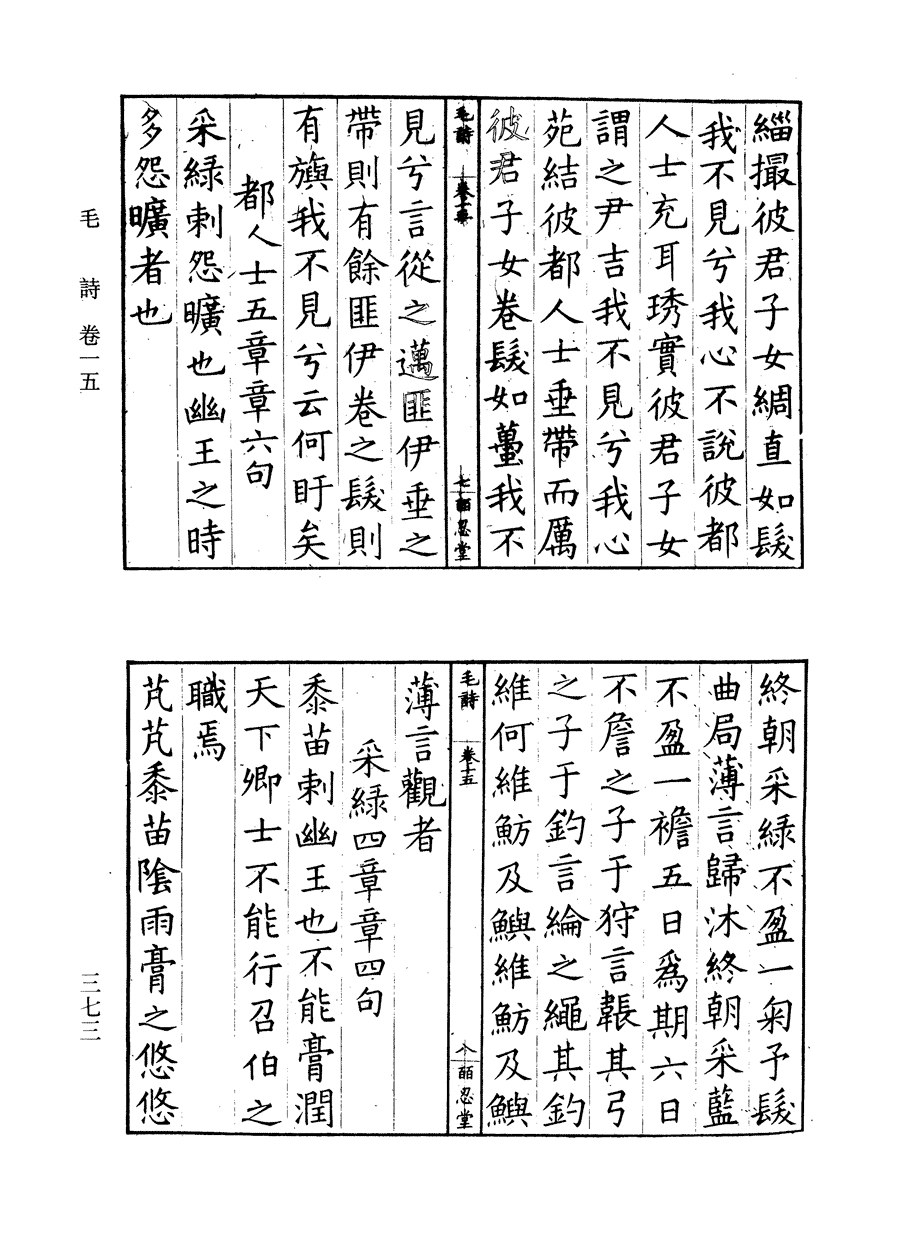 緇撮彼君子女綢直如髮
我不見兮我心不說彼都
人士充耳琇實彼君子女
謂之尹吉我不見兮我心
苑結彼都人士垂帶而厲
彼君子女卷髮如蠆我不
毛詩 卷十五 七 皕忍堂
見兮言從之邁匪伊垂之
帶則有餘匪伊卷之髮則
有旟我不見兮云何盱矣
都人士五章章六句
采綠刺怨曠也幽王之時
多怨曠者也
終朝采綠不盈一匊予髮
曲局薄言歸沐終朝采藍
不盈一襜五日爲期六日
不詹之子于狩言韔其弓
之子于釣言綸之繩其釣
維何維魴及鱮維魴及鱮
毛詩 卷十五 八 皕忍堂
薄言觀者
采綠四章章四句
黍苗刺幽王也不能膏潤
天下卿士不能行召伯之
職焉
芃芃黍苗陰雨膏之悠悠
毛詩 卷一五
三七三